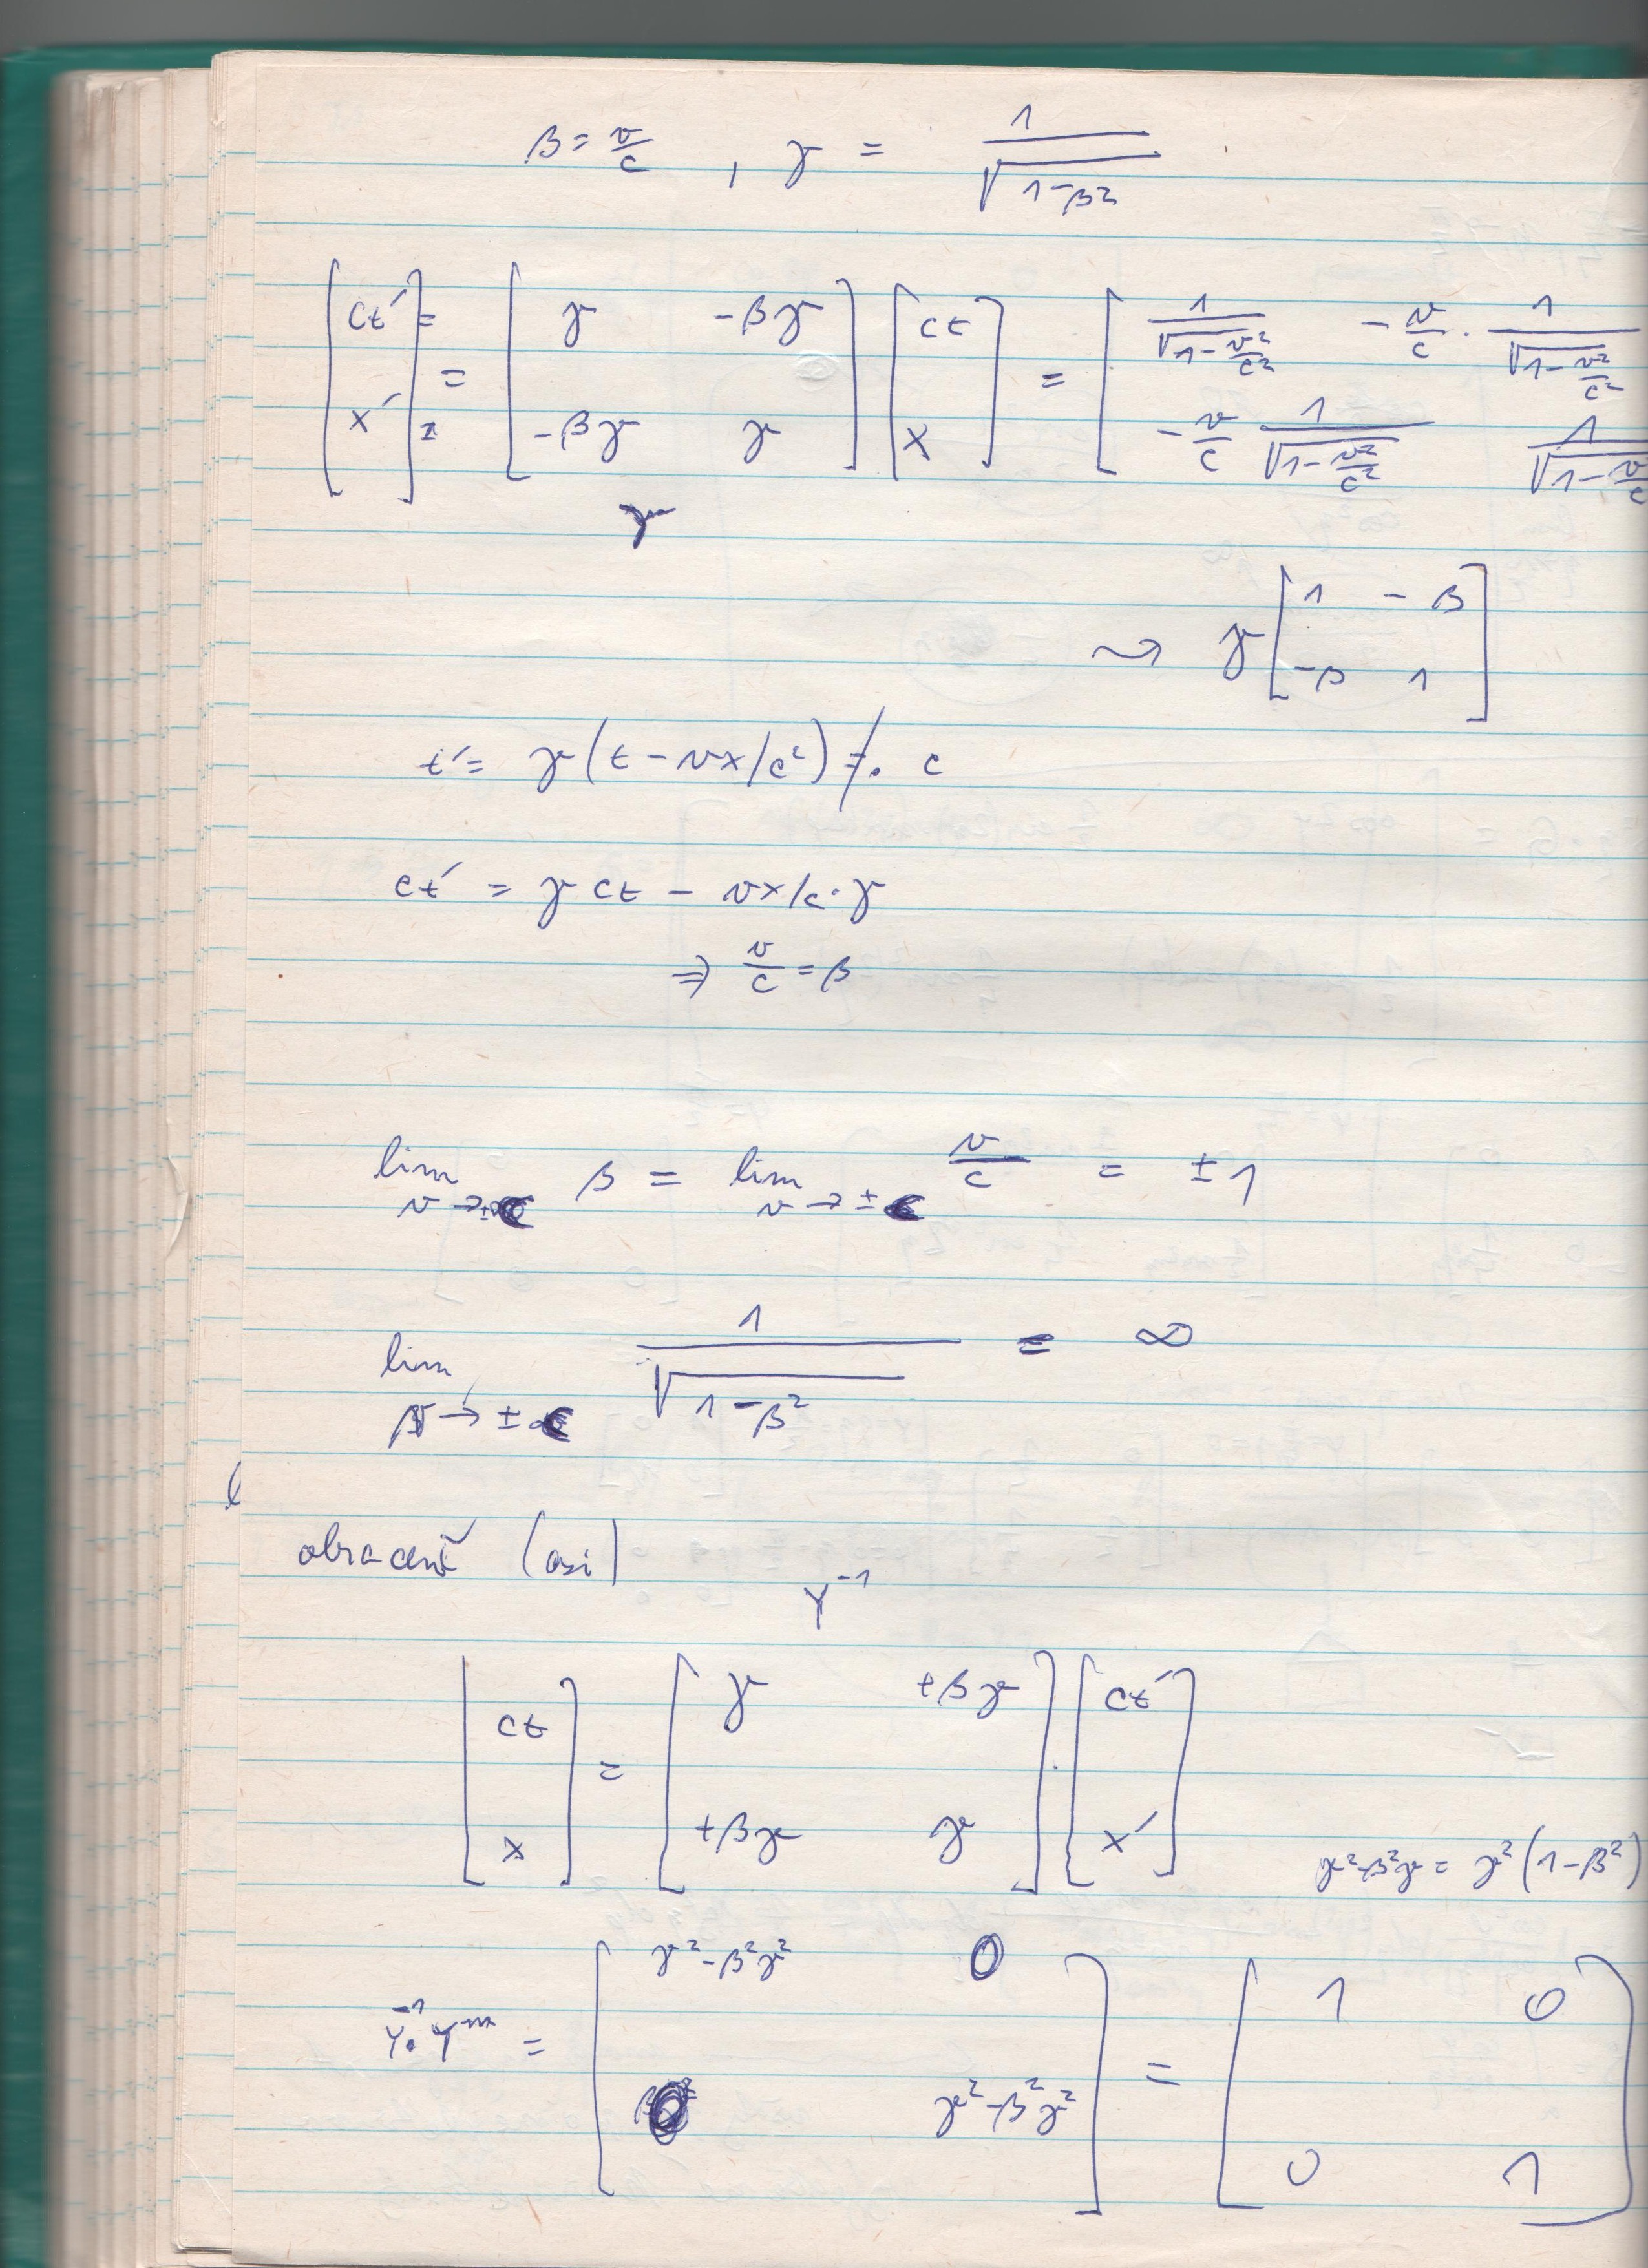 β = v/c , γ = 1/√(1-β²)
[ct' ; x'] = [γ -βγ ; -βγ γ] [ct ; x] = [1/√(1-v²/c²) -v/c · 1/√(1-v²/c²) ; -v/c 1/√(1-v²/c²) 1/√(1-v/c
γ
⇝ γ [1 -β ; -β 1]
t' = γ(t - vx/c²) /· c
ct' = γ ct - vx/c · γ
⇒ v/c = β
lim v→±c β = lim v→±c v/c = ±1
lim v→±c 1/√(1-β²) = ∞
obraceně (asi)
Y⁻¹
[ct ; x] = [γ +βγ ; +βγ γ] · [ct' ; x']
γ²-β²γ = γ²(1-β²)
Y⁻¹· Y = [γ²-β²γ² 0 ; 0 γ²-β²γ²] = [1 0 ; 0 1]